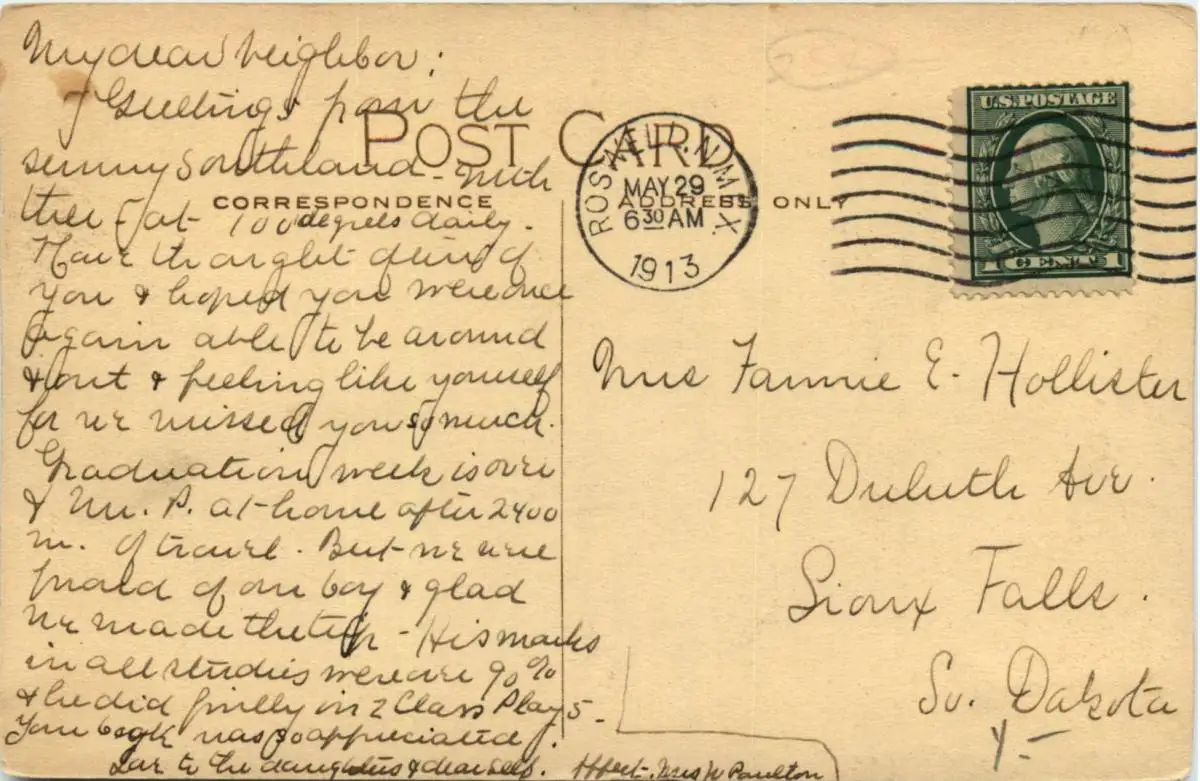 My dear Neighbor:
Greetings from the
sunny Southland - with
ther at 100 degrees daily.
Have thought often of
you & hoped you were once
again able to be around
& out & feeling like yourself
for we missed you so much.
Graduation week is over
& Mr. P. at home after 2400
m. of travel. But we were
proud of our boy & glad
we made the trip - His marks
in all studies were over 90%
& he did finely in 2 Class Plays -
Your book was so appreciated.
Love to the daughters & dear self. Mrs W Poulton
POST CARD
CORRESPONDENCE
ADDRESS ONLY
ROSWELL, N. MEX.
MAY 29
6 30 AM
1913
U.S. POSTAGE
1 CENT 1
Mrs Fannie E. Hollister
127 Duluth Ave.
Sioux Falls.
So. Dakota